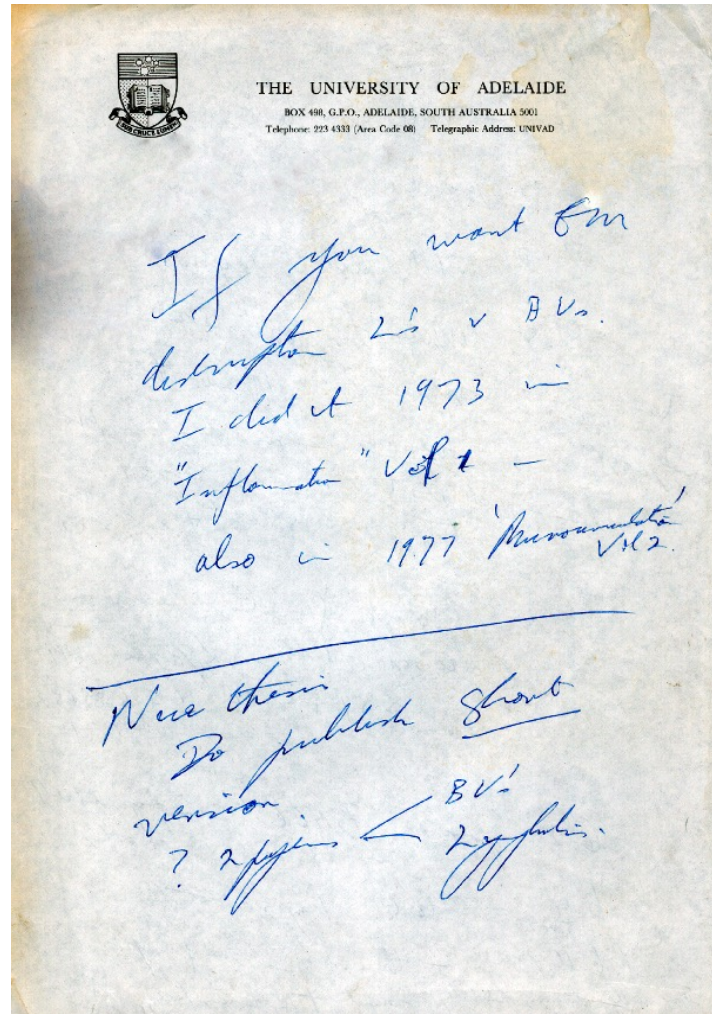 SUB CRUCE LUMEN
THE UNIVERSITY OF ADELAIDE
BOX 498, G.P.O., ADELAIDE, SOUTH AUSTRALIA 5001
Telephone: 223 4333 (Area Code 08) Telegraphic Address: UNIVAD
If you want
L's v BVs.
I did it 1973 in
"Inflammation" Vol 1 –
also in 1977 'Microcirculation'
Vol 2.
Nice thesis
Do publish short
version.
? 2 papers < BV's
Lymphatics.